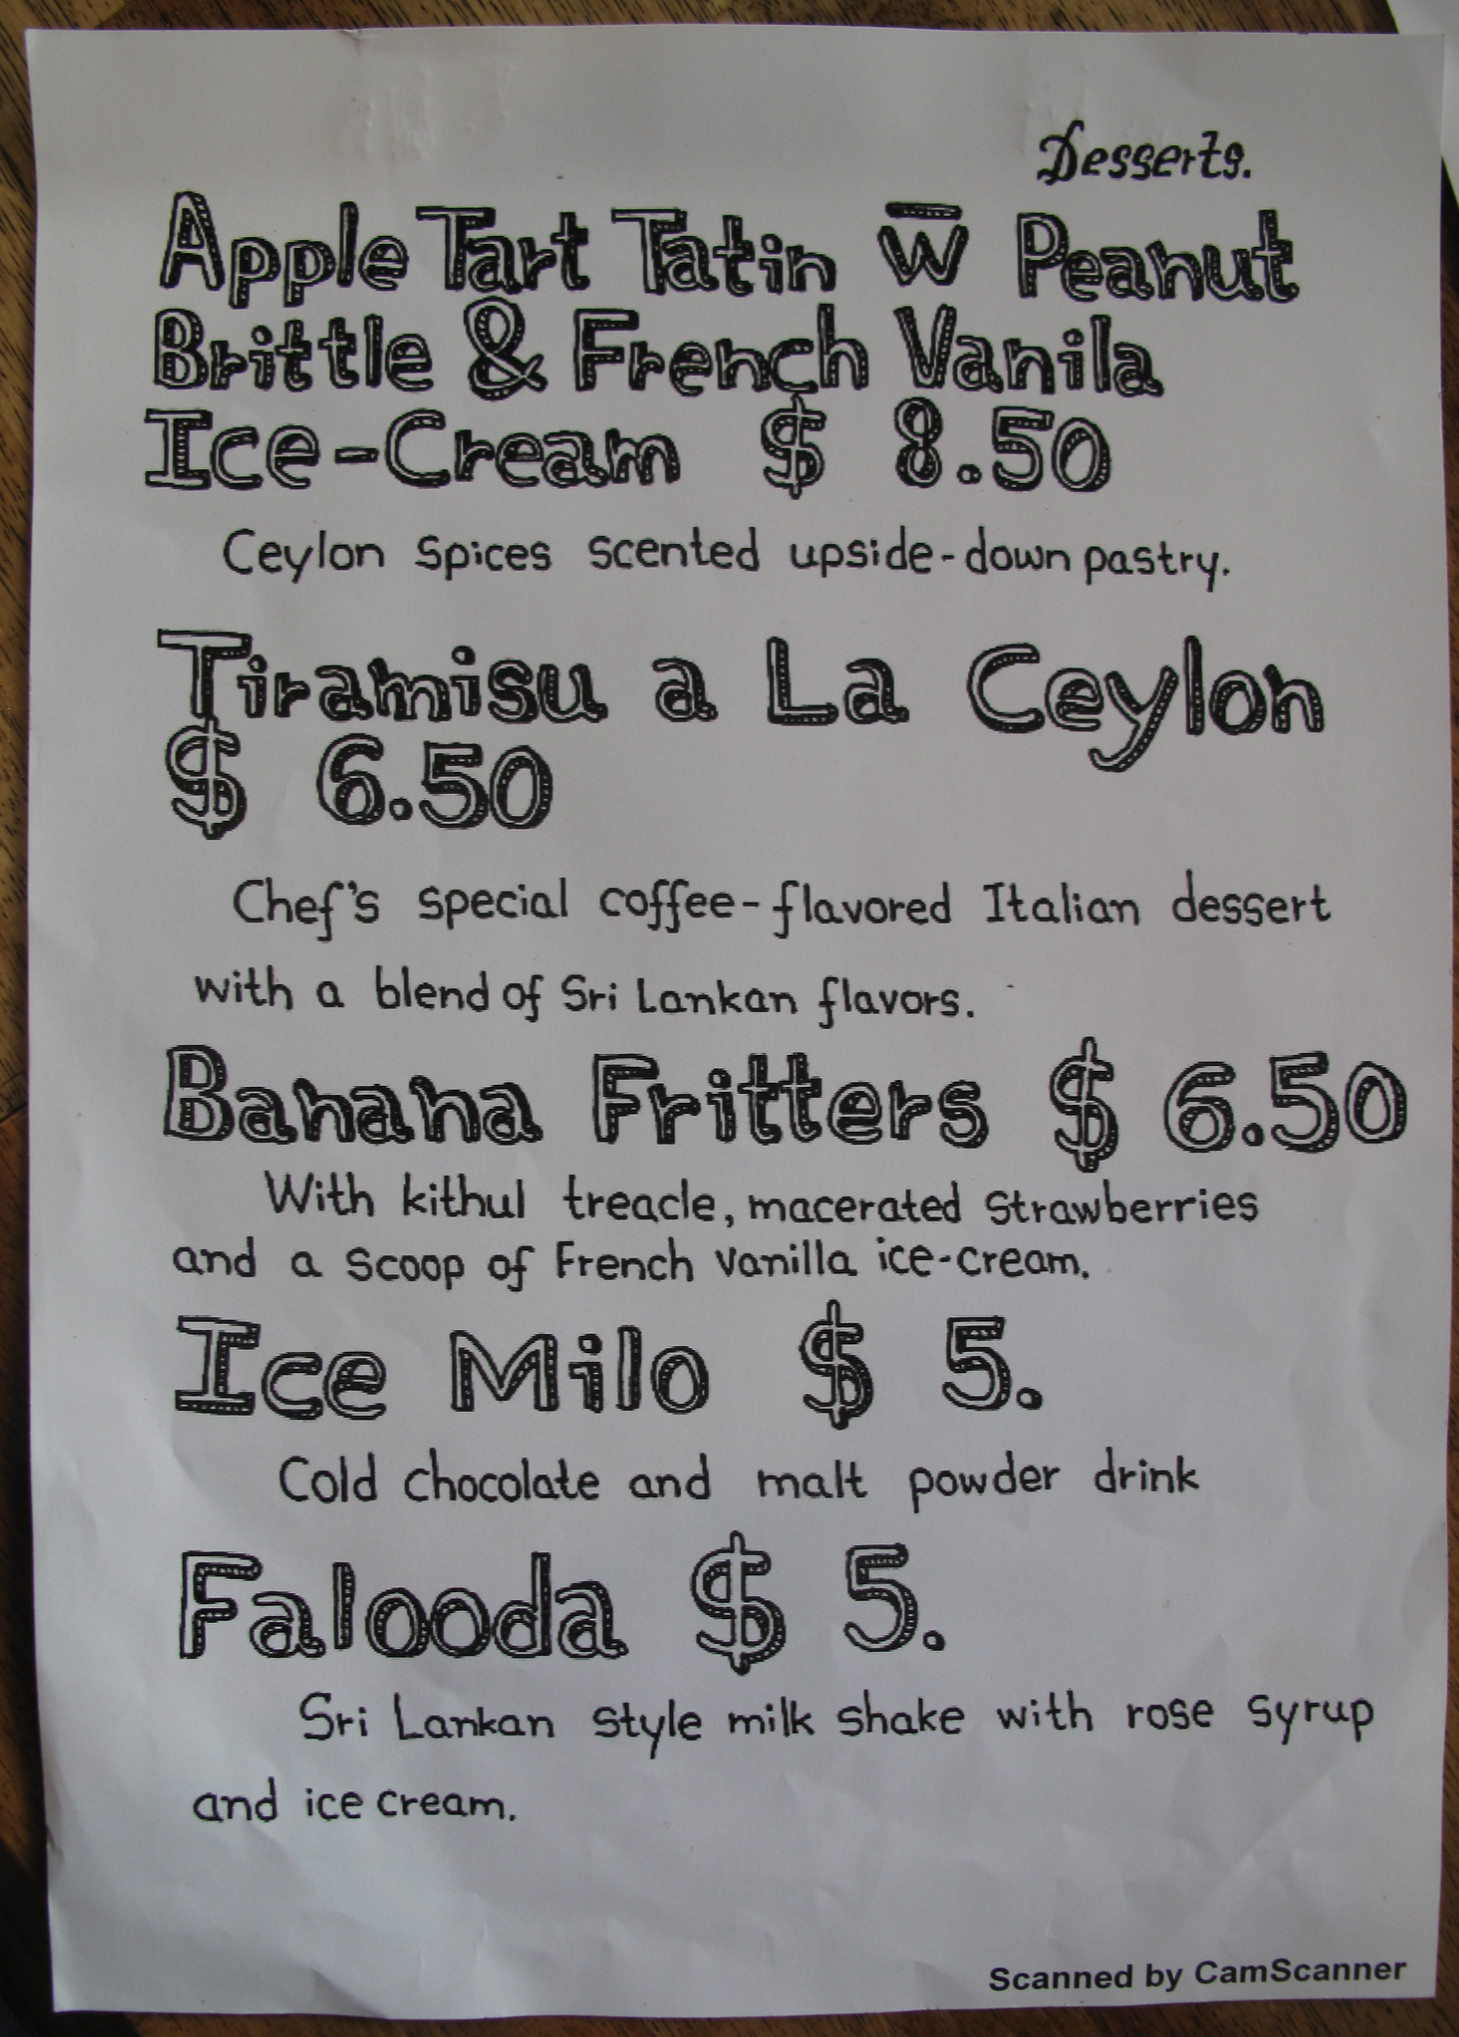 Desserts.
Apple Tart Tatin w̅ Peanut
Brittle & French Vanila
Ice-Cream $ 8.50
Ceylon Spices scented upside-down pastry.
Tiramisu a La Ceylon
$ 6.50
Chef's special coffee-flavored Italian dessert
with a blend of Sri Lankan flavors.
Banana Fritters $ 6.50
With kithul treacle, macerated Strawberries
and a scoop of French Vanilla ice-cream.
Ice Milo $ 5.
Cold chocolate and malt powder drink
Falooda $ 5.
Sri Lankan style milk shake with rose syrup
and ice cream.
Scanned by CamScanner